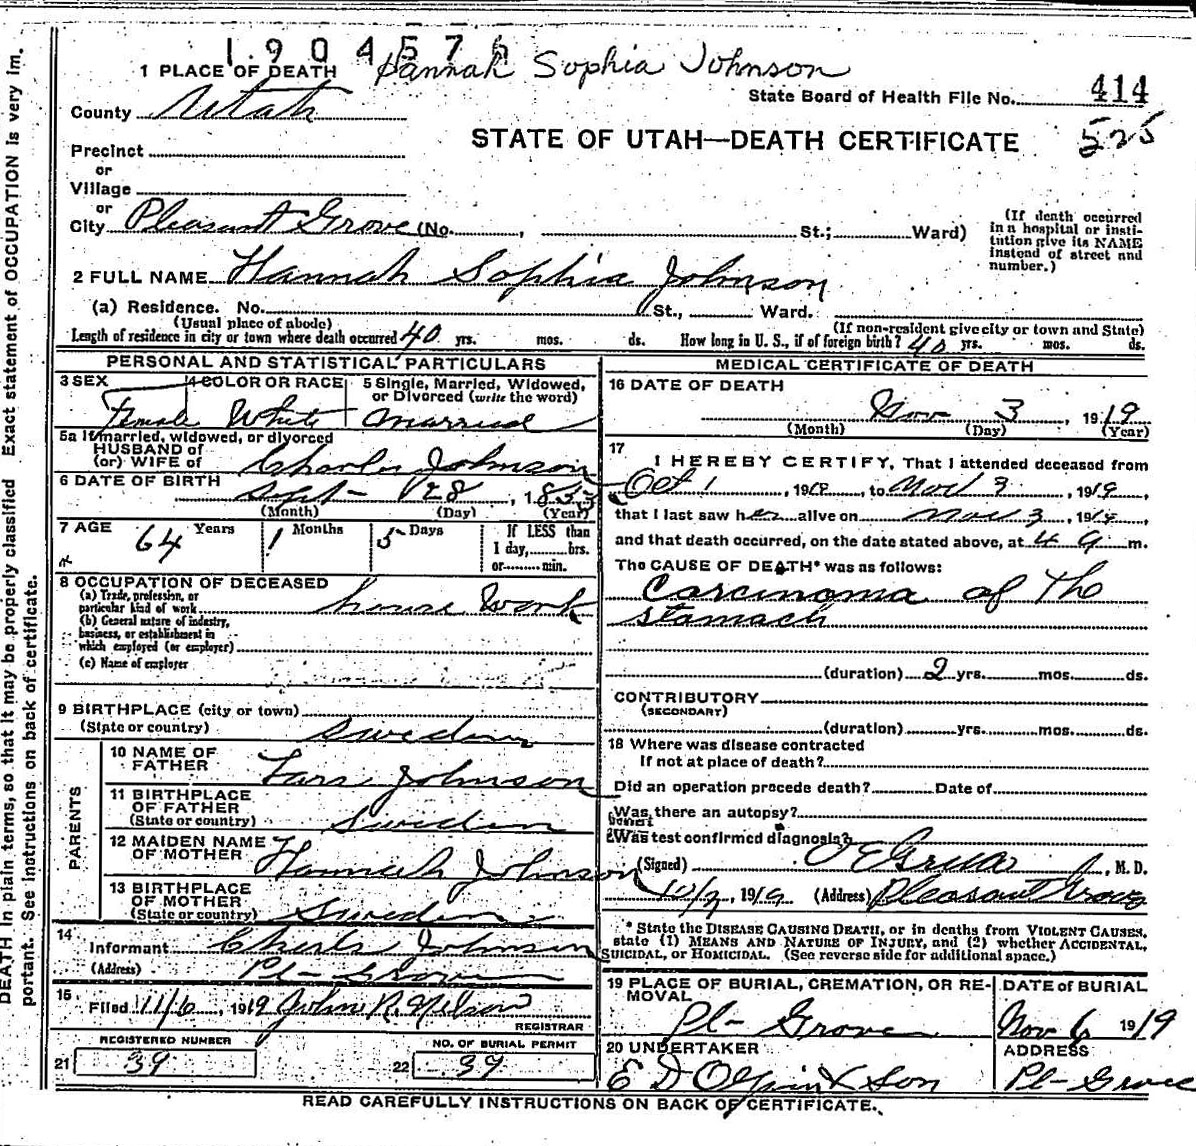 1904575
Hannah Sophia Johnson
1 PLACE OF DEATH
State Board of Health File No. 414
County Utah
STATE OF UTAH—DEATH CERTIFICATE 525
Precinct
or
Village
or
City Pleasant Grove (No. , St.; Ward)
(If death occurred in a hospital or institution give its NAME instead of street and number.)
2 FULL NAME Hannah Sophia Johnson
(a) Residence. No. St., Ward.
(Usual place of abode) (If non-resident give city or town and State)
Length of residence in city or town where death occurred 40 yrs. mos. ds. How long in U. S., if of foreign birth? 40 yrs. mos. ds.
PERSONAL AND STATISTICAL PARTICULARS
3 SEX 4 COLOR OR RACE 5 Single, Married, Widowed, or Divorced (write the word)
Female White Married
5a If married, widowed, or divorced
HUSBAND of
(or) WIFE of Charles Johnson
6 DATE OF BIRTH Sept 28, 1855
(Month) (Day) (Year)
7 AGE 64 Years 1 Months 5 Days If LESS than 1 day, hrs. or min.
8 OCCUPATION OF DECEASED
(a) Trade, profession, or particular kind of work house Work
(b) General nature of industry, business, or establishment in which employed (or employer)
(c) Name of employer
9 BIRTHPLACE (city or town)
(State or country) Sweden
PARENTS
10 NAME OF FATHER Lars Johnson
11 BIRTHPLACE OF FATHER
(State or country) Sweden
12 MAIDEN NAME OF MOTHER Hannah Johnson
13 BIRTHPLACE OF MOTHER
(State or country) Sweden
14
Informant Charls Johnson
(Address) Pl- Grove
15
Filed 11/6, 1919 John R. Nelson
REGISTRAR
REGISTERED NUMBER NO. OF BURIAL PERMIT
21 39 22 39
MEDICAL CERTIFICATE OF DEATH
16 DATE OF DEATH
Nov 3, 1919
(Month) (Day) (Year)
17
I HEREBY CERTIFY, That I attended deceased from
Oct 1, 1918, to Nov 3, 1919,
that I last saw her alive on Nov 3, 1919,
and that death occurred, on the date stated above, at 4 a m.
The CAUSE OF DEATH* was as follows:
Carcinoma of the
Stomach
(duration) 2 yrs. mos. ds.
CONTRIBUTORY
(SECONDARY)
(duration) yrs. mos. ds.
18 Where was disease contracted
If not at place of death?
Did an operation precede death? Date of
Was there an autopsy?
What test confirmed diagnosis?
(Signed) , M. D.
, 1919 (Address) Pleasant Grove
* State the DISEASE CAUSING DEATH, or in deaths from VIOLENT CAUSES, state (1) MEANS AND NATURE OF INJURY, and (2) whether ACCIDENTAL, SUICIDAL, or HOMICIDAL. (See reverse side for additional space.)
19 PLACE OF BURIAL, CREMATION, OR REMOVAL DATE of BURIAL
Pl- Grove Nov 6 1919
20 UNDERTAKER ADDRESS
E D Olpin & Son Pl- Grove
READ CAREFULLY INSTRUCTIONS ON BACK OF CERTIFICATE.
DEATH in plain terms, so that it may be properly classified Exact statement of OCCUPATION is very im.
portant. See instructions on back of certificate.